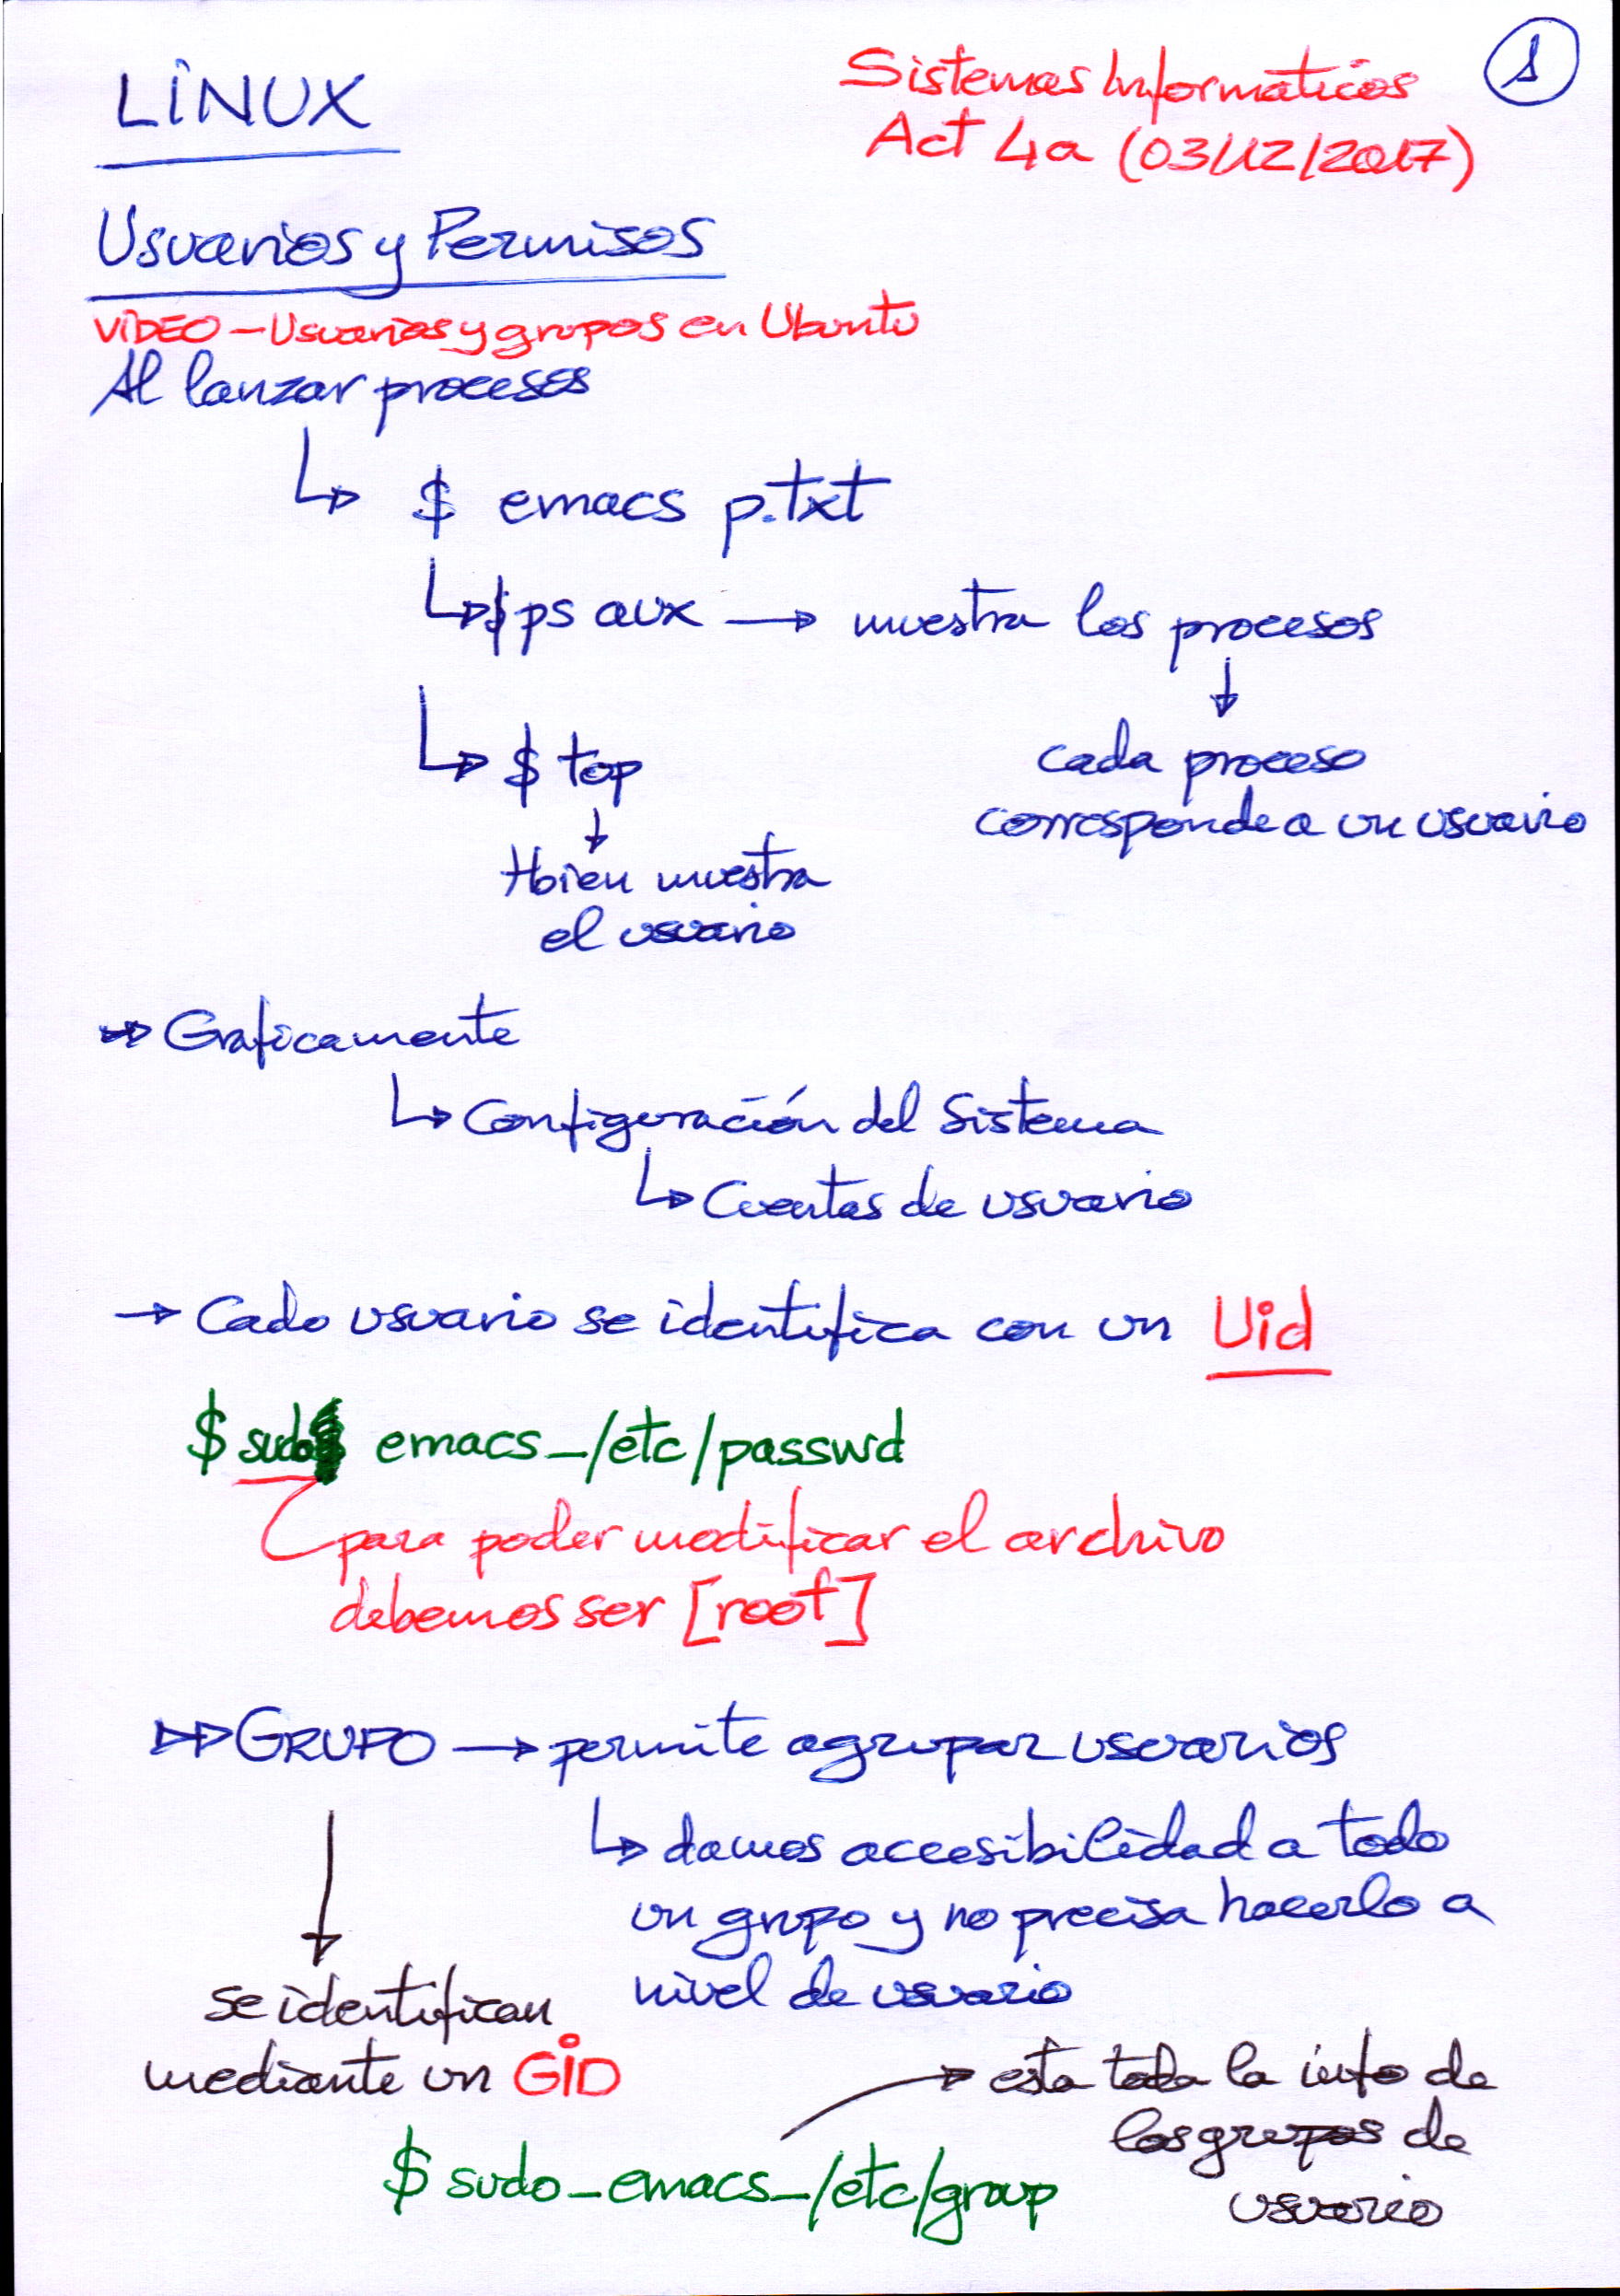 LINUX
Sistemas Informáticos
1
Act 4a (03/12/2017)
Usuarios y Permisos
VÍDEO - Usuarios y grupos en Ubuntu
Al lanzar procesos
↳ $ emacs p.txt
↳ $ ps aux → muestra los procesos
↓
↳ $ top
cada proceso
corresponde a un usuario
↓
tbien muestra
el usuario
→ Graficamente
↳ Configuración del Sistema
↳ Cuentas de usuario
→ Cada usuario se identifica con un Uid
$ sudo emacs_/etc/passwd
para poder modificar el archivo
debemos ser [root]
▷▷ GRUPO → permite agrupar usuarios
↳ damos accesibilidad a todo
un grupo y no precisa hacerlo a
nivel de usuario
↓
se identifican
mediante un GID
→ esta toda la info de
los grupos de
usuario
$ sudo_emacs_/etc/group